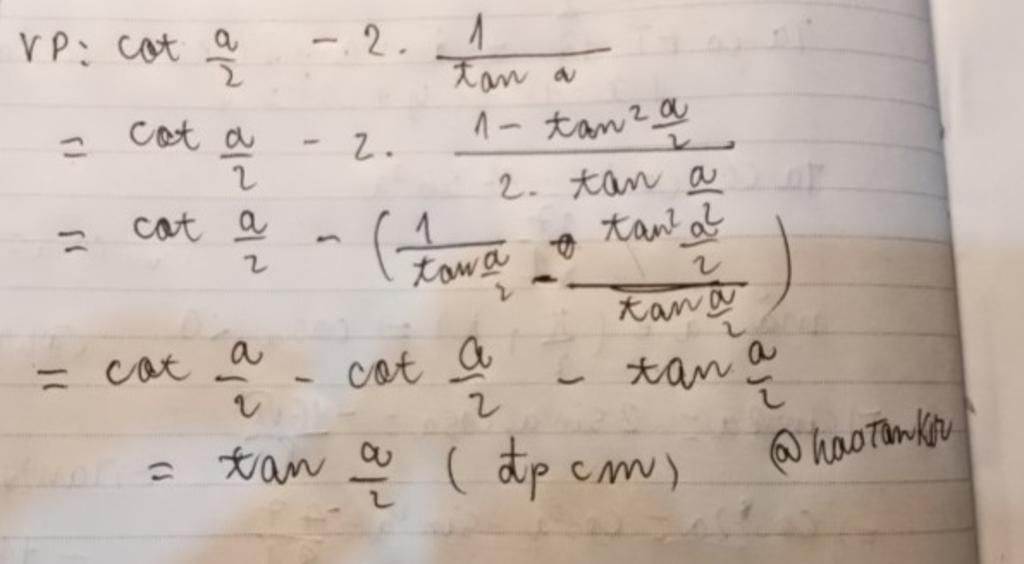 VP: cot a/2 - 2. 1/tan a
= cot a/2 - 2. (1 - tan² a/2)/(2. tan a/2)
= cot a/2 - (1/(tan a/2) - (tan² a²/2)/(tan a/2))
= cot a/2 - cot a/2 - tan a/2
= tan a/2 (đpcm)